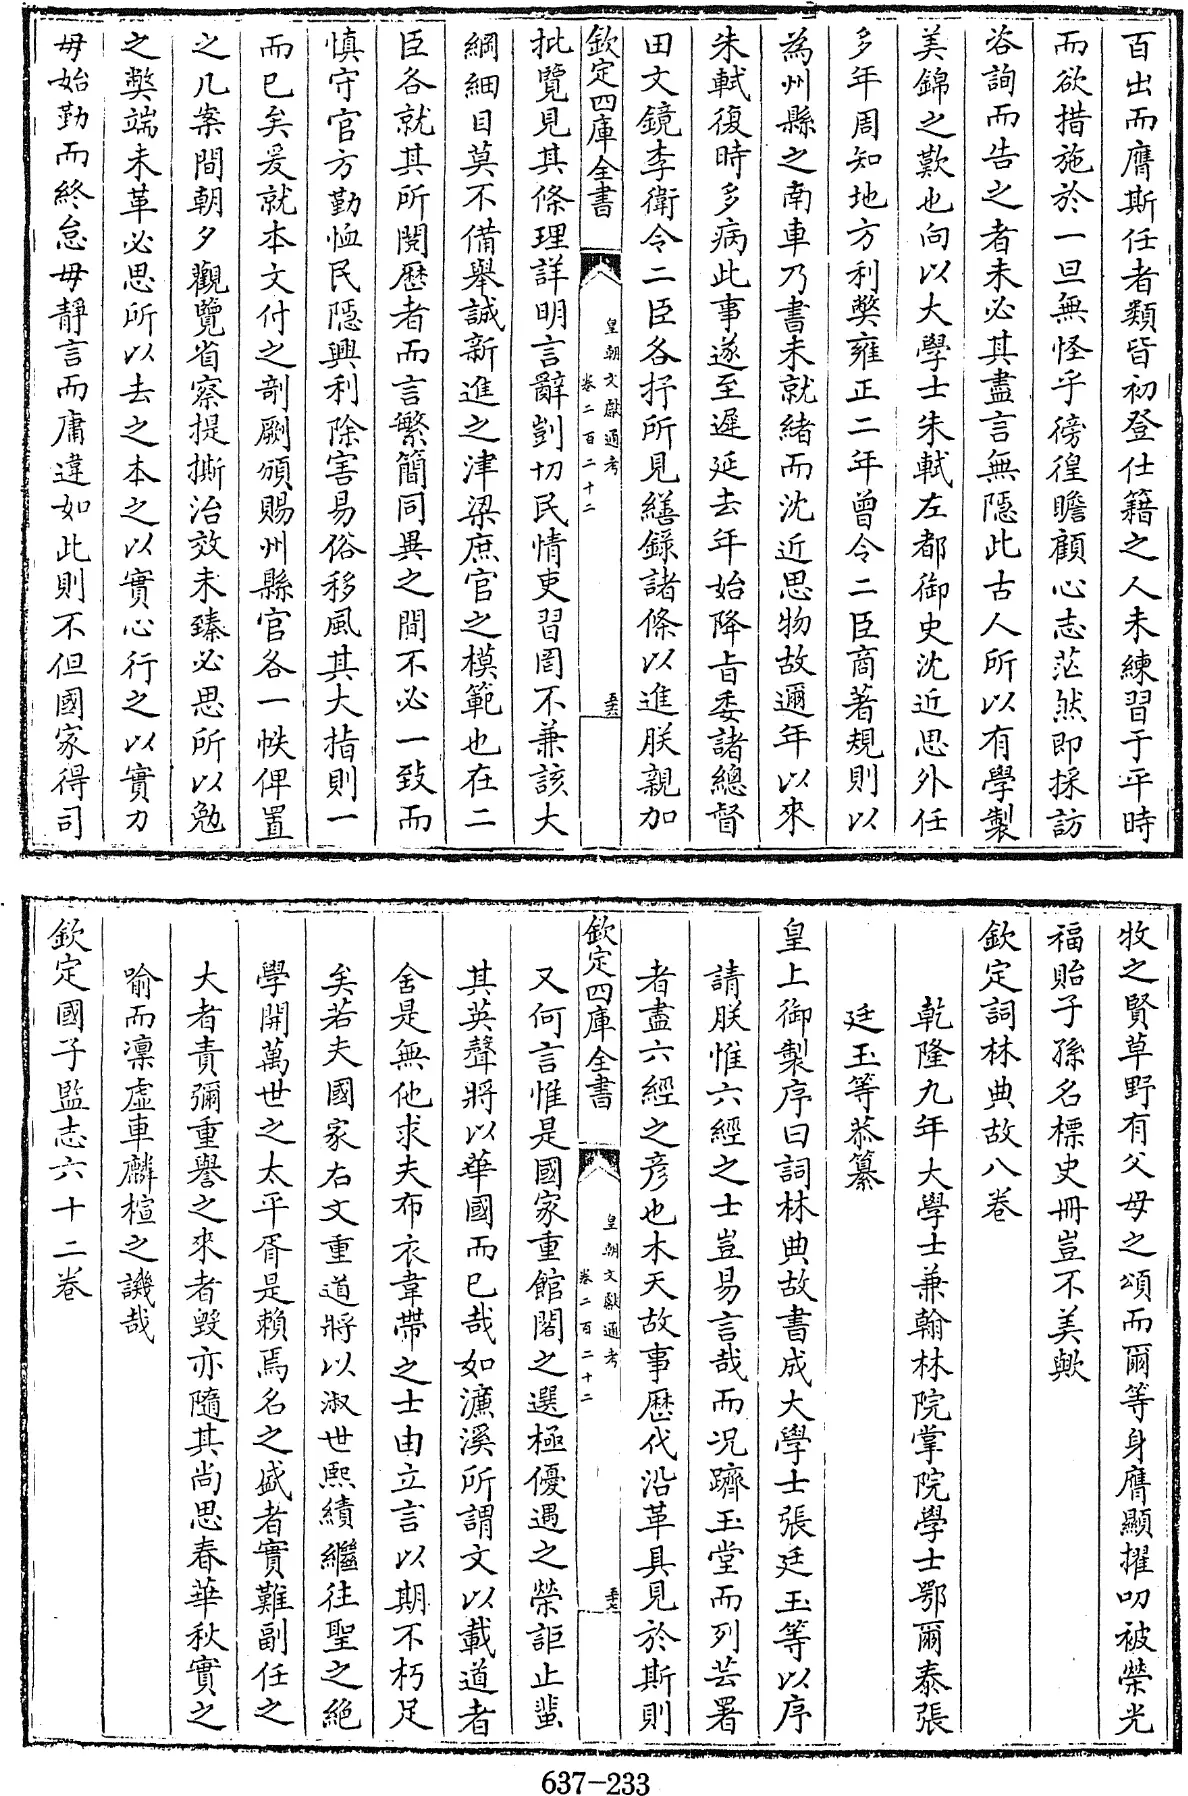 百出而膺斯任者類皆初登仕籍之人未練習于平時
而欲措施於一旦無怪乎徬徨瞻顧心志茫然即採訪
咨詢而告之者未必其盡言無隱此古人所以有學製
美錦之歎也向以大學士朱軾左都御史沈近思外任
多年周知地方利弊雍正二年曾令二臣商著規則以
為州縣之南車乃書未就緒而沈近思物故邇年以來
朱軾復時多病此事遂至遲延去年始降旨委諸總督
田文鏡李衛令二臣各抒所見繕錄諸條以進朕親加
欽定四庫全書
皇朝文獻通考
卷二百二十二
批覽見其條理詳明言辭剴切民情吏習罔不兼該大
綱細目莫不備舉誠新進之津梁庶官之模範也在二
臣各就其所閱歷者而言繁簡同異之間不必一致而
慎守官方勤恤民隱興利除害易俗移風其大指則一
而已矣爰就本文付之剞劂頒賜州縣官各一帙俾置
之几案間朝夕觀覽省察提撕治效未臻必思所以勉
之弊端未革必思所以去之本之以實心行之以實力
毋始勤而終怠毋靜言而庸違如此則不但國家得司
牧之賢草野有父母之頌而爾等身膺顯擢叨被榮光
福貽子孫名標史冊豈不美歟
欽定詞林典故八卷
乾隆九年大學士兼翰林院掌院學士鄂爾泰張
廷玉等恭纂
皇上御製序曰詞林典故書成大學士張廷玉等以序
請朕惟六經之士豈易言哉而況躋玉堂而列芸署
者盡六經之彥也木天故事歷代沿革具見於斯則
欽定四庫全書
皇朝文獻通考
卷二百二十二
又何言惟是國家重館閣之選極優遇之榮詎止蜚
其英聲將以華國而已哉如濂溪所謂文以載道者
舍是無他求夫布衣韋帶之士由立言以期不朽足
矣若夫國家右文重道將以淑世熙績繼往聖之絕
學開萬世之太平胥是賴焉名之盛者實難副任之
大者責彌重譽之來者毀亦隨其尚思春華秋實之
喻而凜虛車麟楦之譏哉
欽定國子監志六十二卷
637-233